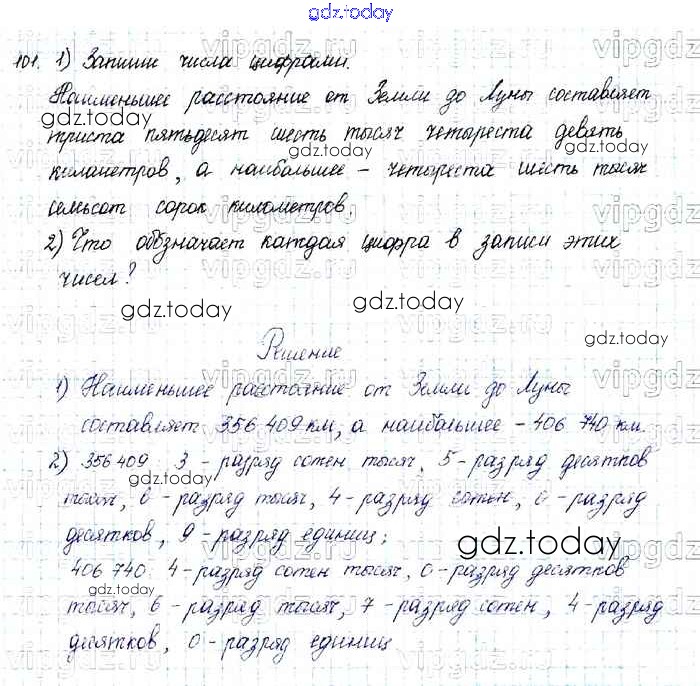 gdz.today
101. 1) Запиши числа цифрами.
Наименьшее расстояние от Земли до Луны составляет
gdz.today
триста пятьдесят шесть тысяч четыреста девять
gdz.today
километров, а наибольшее – четыреста шесть тысяч
семьсот сорок километров.
2) Что обозначает каждая цифра в записи этих
чисел?
gdz.today
gdz.today
gdz.today
Решение
1) Наименьшее расстояние от Земли до Луны
составляет 356 409 км, а наибольшее – 406 740 км.
2) 356 409 3 – разряд сотен тысяч, 5 – разряд десятков
gdz.today
тысяч, 6 – разряд тысяч, 4 – разряд сотен, 0 – разряд
десятков, 9 – разряд единиц;
gdz.today
406 740 4 – разряд сотен тысяч, 0 – разряд десятков
тысяч, 6 – разряд тысяч, 7 – разряд сотен, 4 – разряд
gdz.today
десятков, 0 – разряд единиц